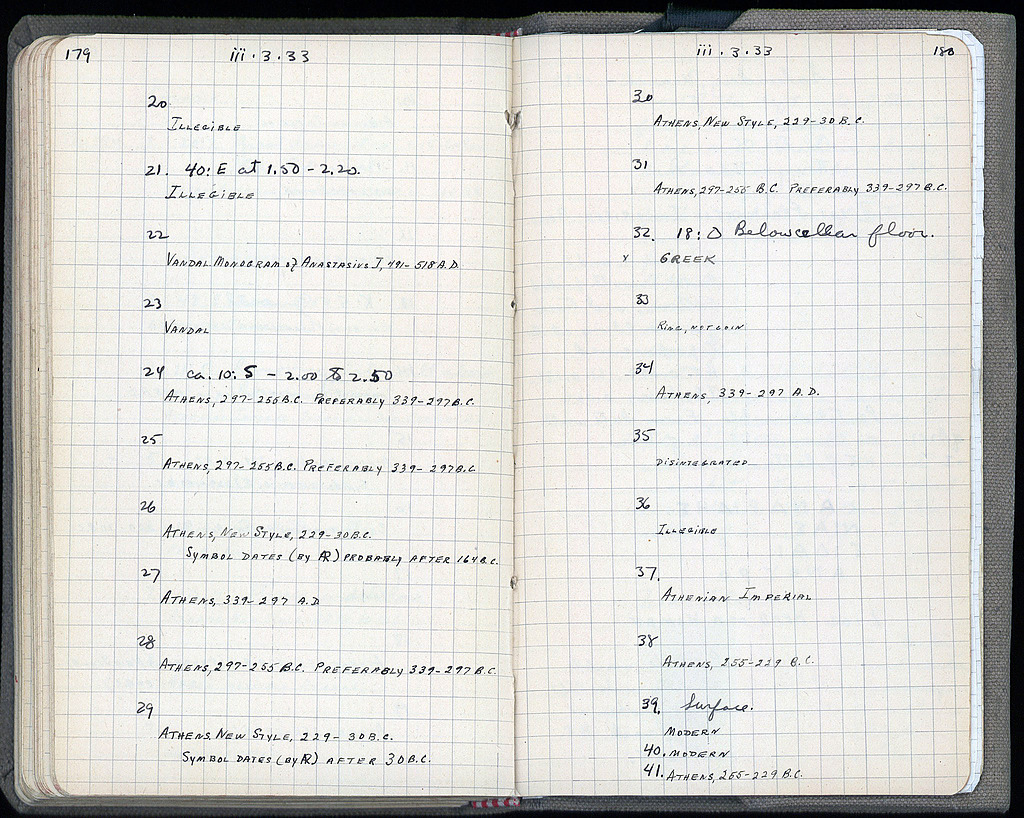 179 iii·3·33
20
ILLEGIBLE
21. 40: E at 1.50 - 2.20.
ILLEGIBLE
22
VANDAL MONOGRAM of ANASTASIUS I, 491-518 A.D.
23
VANDAL
24 ca. 10: 5 - 2.00 to 2.50
ATHENS, 297-255 B.C. PREFERABLY 339-297 B.C.
25
ATHENS, 297-255 B.C. PREFERABLY 339-297 B.C.
26
ATHENS, NEW STYLE, 229-30 B.C.
SYMBOL DATES (BY AR) PROBABLY AFTER 164 B.C.
27
ATHENS, 339-297 A.D
28
ATHENS, 297-255 B.C. PREFERABLY 339-297 B.C.
29
ATHENS, NEW STYLE, 229-30 B.C.
SYMBOL DATES (BY AR) AFTER 30 B.C.
iii·3·33 180
30
ATHENS, NEW STYLE, 229-30 B.C.
31
ATHENS, 297-255 B.C. PREFERABLY 339-297 B.C.
32. 18: D Below cellar floor.
x GREEK
33
RING, NOT COIN
34
ATHENS, 339-297 A.D.
35
DISINTEGRATED
36
ILLEGIBLE
37.
ATHENIAN IMPERIAL
38
ATHENS, 255-229 B.C.
39. Surface.
MODERN
40. MODERN
41. ATHENS, 255-229 B.C.